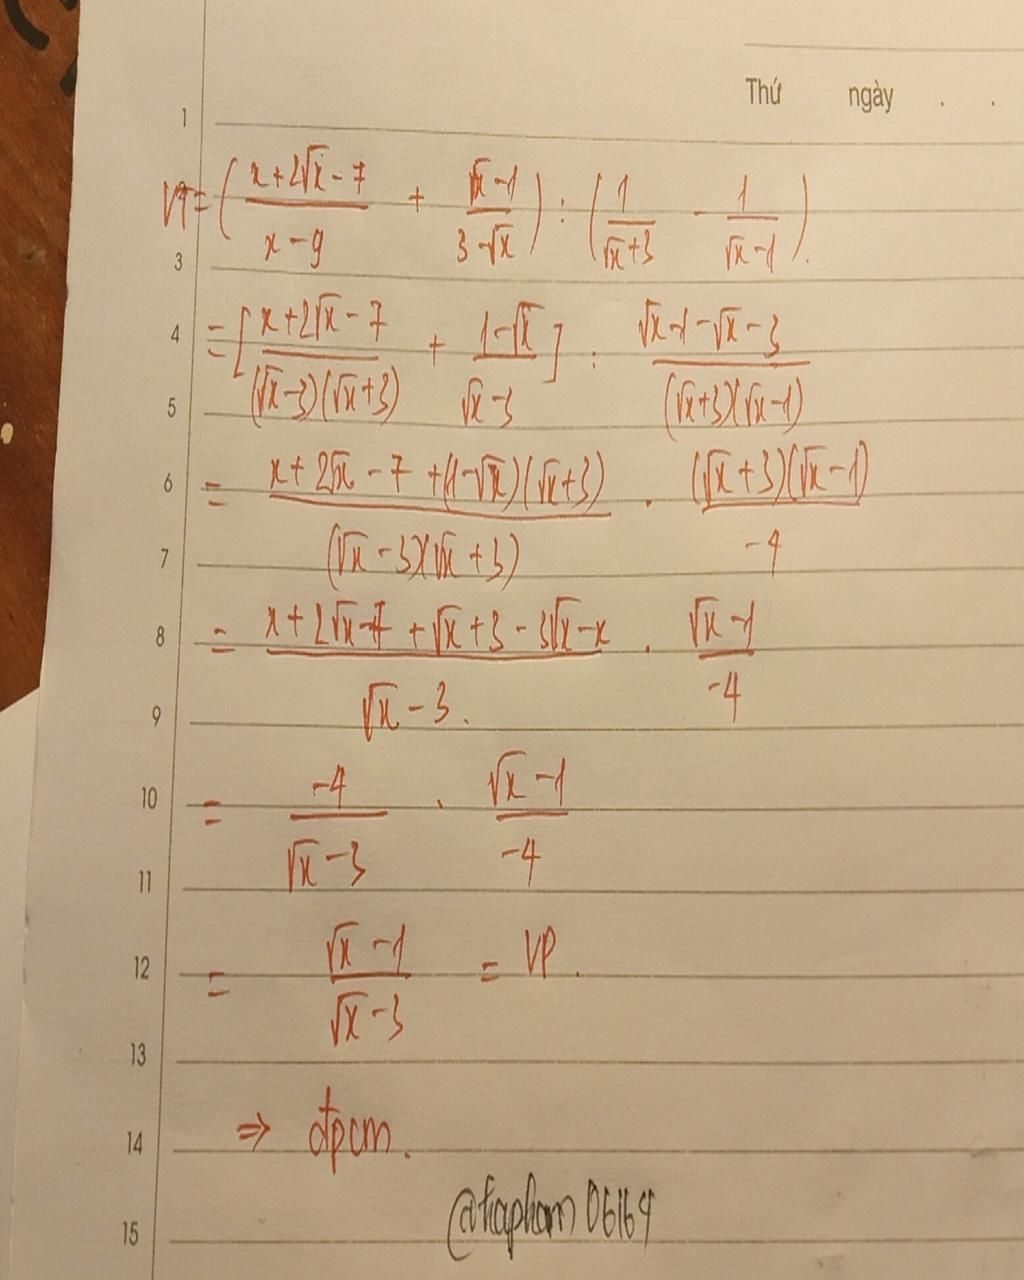 Thứ ngày . .
1
VT = ( (x + 2√x - 7)/(x - 9) + (√x - 1)/(3 - √x) ) : ( 1/(√x + 3) - 1/(√x - 1) ).
3
4 = [ (x + 2√x - 7)/((√x - 3)(√x + 3)) + (1 - √x)/(√x - 3) ] : (√x - 1 - √x - 3)/((√x + 3)(√x - 1))
5
6 = (x + 2√x - 7 + (1 - √x)(√x + 3))/((√x - 3)(√x + 3)) . ((√x + 3)(√x - 1))/(-4)
7
8 = (x + 2√x - 7 + √x + 3 - 3√x - x)/(√x - 3) . (√x - 1)/(-4)
9
10 = (-4)/(√x - 3) . (√x - 1)/(-4)
11
12 = (√x - 1)/(√x - 3) = VP.
13
14 ⇒ đpcm.
@hapham06164
15